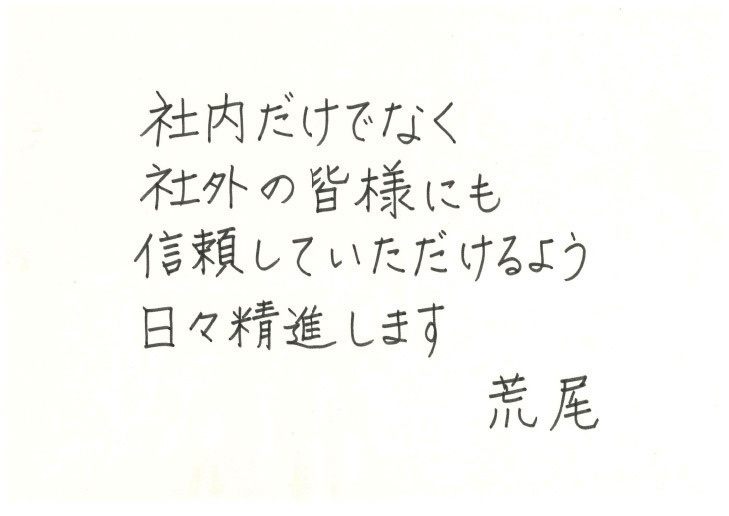 社内だけでなく
社外の皆様にも
信頼していただけるよう
日々精進します
荒尾